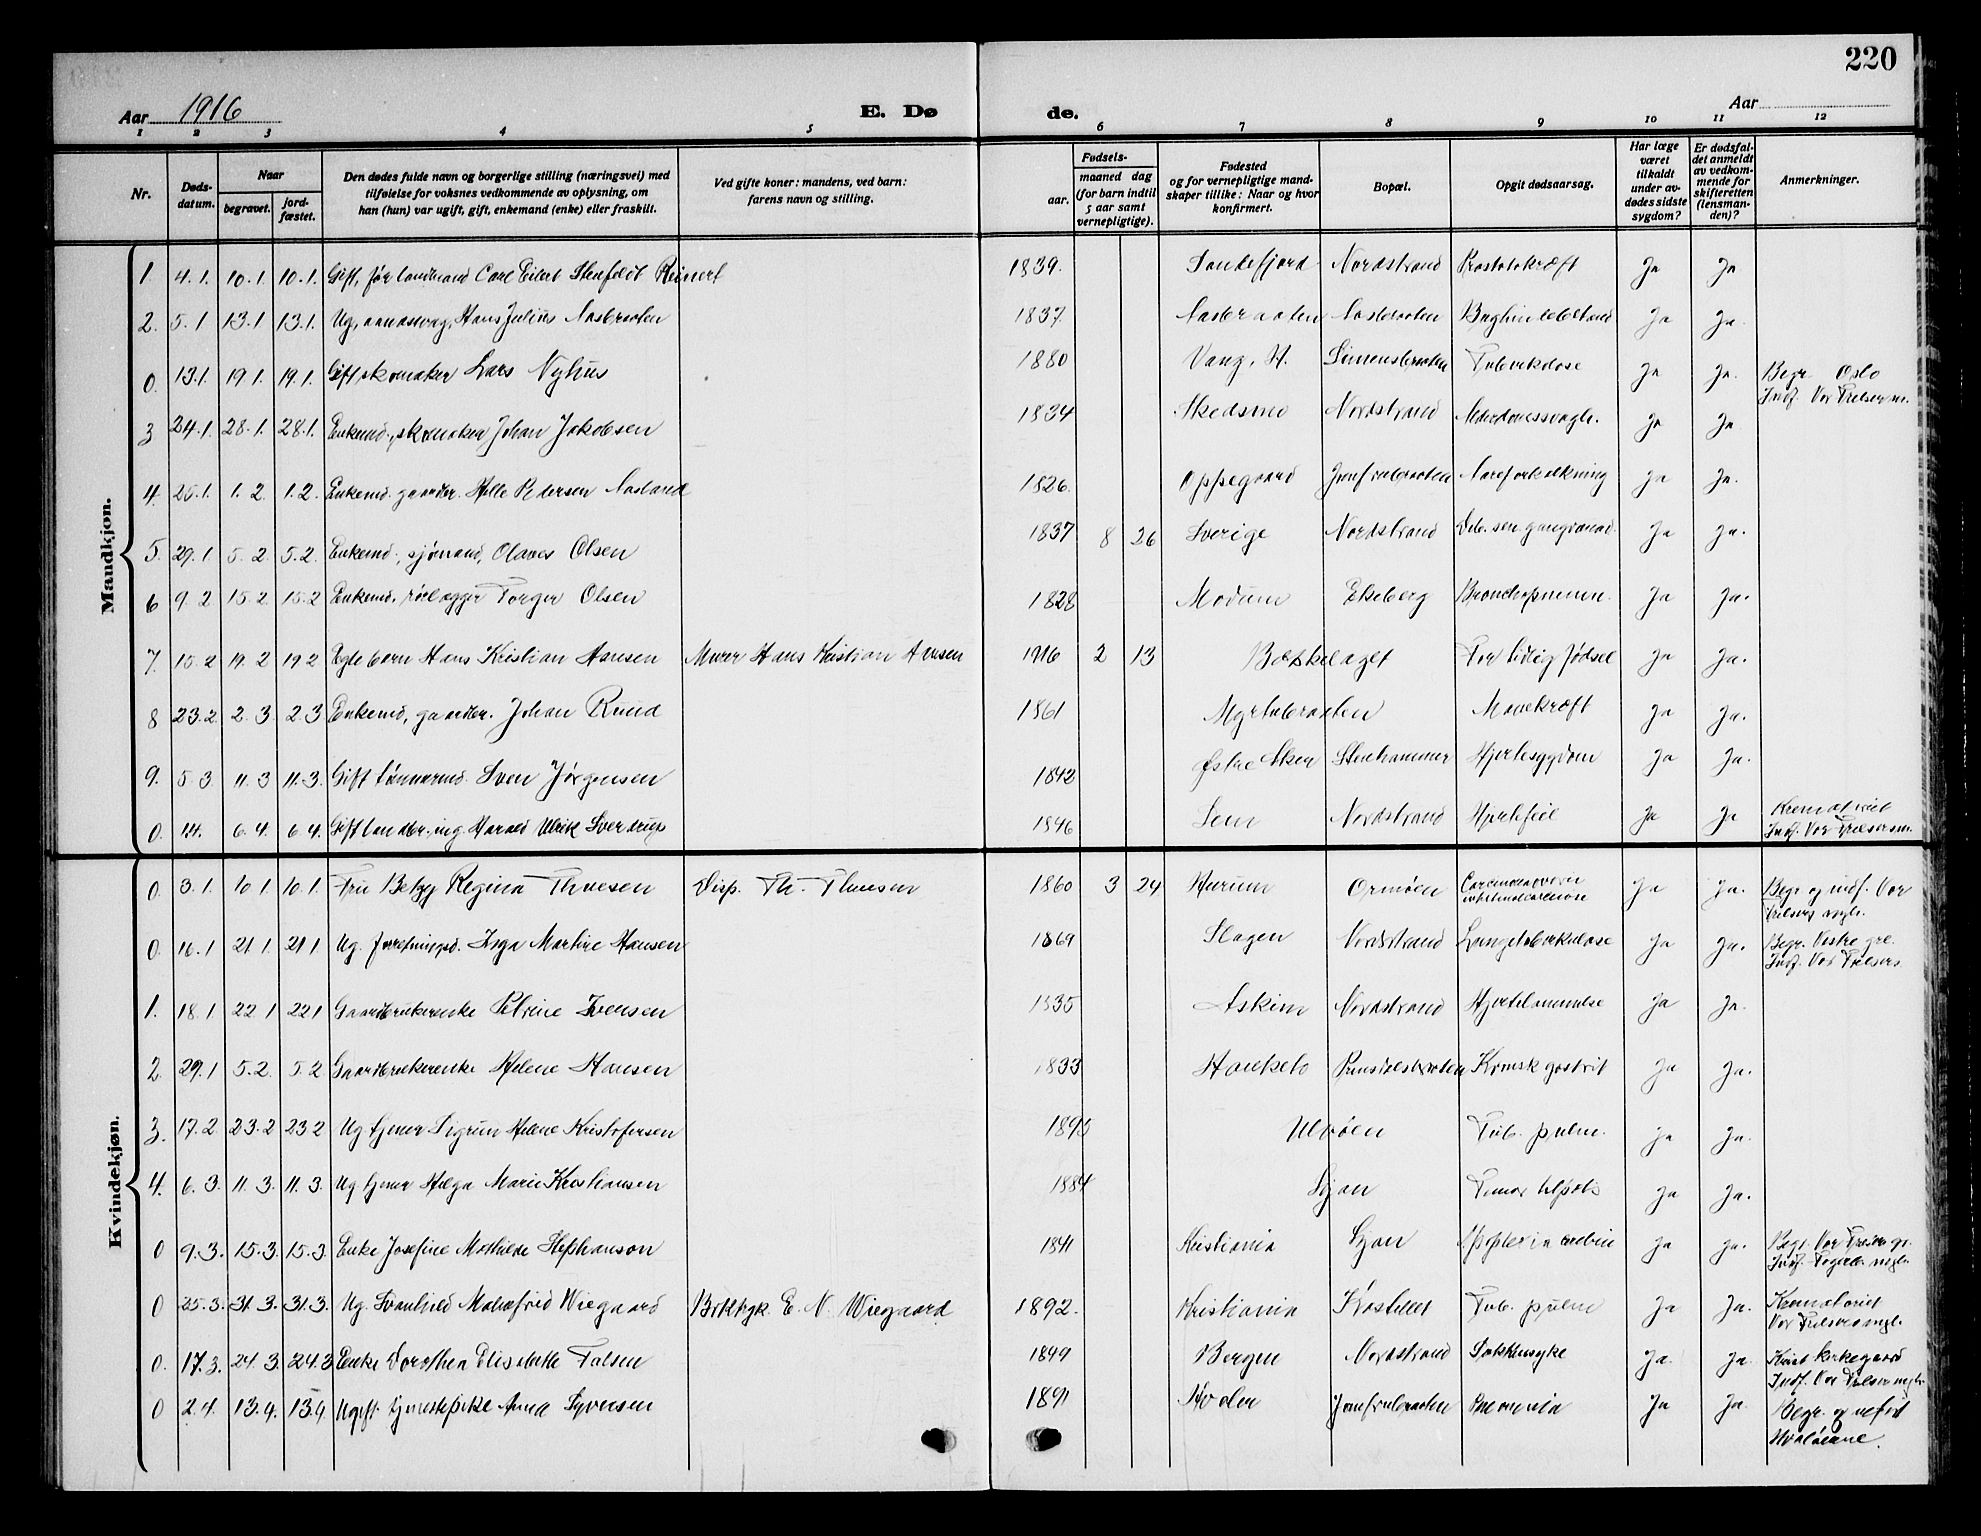 220
Aar 1916
E. Dø
de.
Aar
1 2 3 4 5 6 7 8 9 10 11 12
Nr.
Døds-
datum.
Naar
begravet.
jord-
fæstet.
Den dødes fulde navn og borgerlige stilling (næringsvei) med
tilføielse for voksnes vedkommende av oplysning, om
han (hun) var ugift, gift, enkemand (enke) eller fraskilt.
Ved gifte koner: mandens, ved barn:
farens navn og stilling.
Fødsels-
aar.
maaned dag
(for barn indtil
5 aar samt
vernepligtige).
Fødested
og for vernepligtige mand-
skaper tillike: Naar og hvor
konfirmert.
Bopæl.
Opgit dødsaarsag.
Har læge
været
tilkaldt
under av-
dødes sidste
sygdom?
Er dødsfal-
det anmeldt
av vedkom-
mende for
skifteretten
(lensman-
den)?
Anmerkninger.
Mandkjøn.
1. 4.1. 10.1 10.1. Gift, før landmand Carl Eilert Stenfeldt Reinert 1839. Sandefjord Nordstrand Prostatakræft Ja Ja
2. 5.1 13.1 13.1. Ug, aandssvag, Hans Julius 1837. Ja Ja
0. 13.1. 19 1. 19.1. Gift skomaker Lars Nyhus 1880 Vang, H. Simensbraaten Tuberkulose Ja Ja. Begr. Oslo
Indf. Vor Frelser m.
3 24.1. 28.1. 28.1. Enkemd., skomaker Johan Jakobsen 1834 Skedsmo Nordstrand Alderdomssvagh. Ja Ja
4. 25.1. 1.2. 1.2. Enkemd. gaardbr. Petersen 1826. Oppegaard Jomfrubraaten Aareforkalkning Ja Ja.
5. 29.1 5.2 5.2. Enkemd., sjømand, Olaves Olsen 1837 8 26 Sverige Nordstrand Ja Ja.
6 9.2 15.2. 15.2 Enkemd. Torger Olsen 1828 Modum Ekeberg Bronchopneum. Ja Ja.
7. 15.2 19.2 19 2 Egte barn Hans Kristian Hansen Murer Hans Kristian Hansen 1916 2 13 Bækkelaget For tidlig fødsel Ja Ja.
8 23.2. 2.3. 2.3 Enkemd, gaardbr. Johan Ruud 1861 Myrtebraaten Mavekræft Ja Ja.
9. 5.3 11.3 11.3. Gift tømmermd. Sven Jørgensen 1842 Østre Stenhammer Hjertesygdom Ja Ja.
0. 1.4. 6.4. 6 4. Gift landbr. ing. Harald Ulrik Sverdrup 1846 Sem Nordstrand Hjertefeil Ja Ja Krematoriet
Indf. Vor Frelsers m.
Kvindekjøn.
0. 3.1. 10 1. 10.1. Fru Betzy Regina Thuesen Disp. Th. Thuesen 1860 3 24 Hurum Ormøen Ja Ja. Begr. og indf. Vor
Frelsers mgh.
0. 16.1 21 1. 21 1 Ug. Inga Martine Hansen 1869 Slagen Nordstrand Lungetuberkulose Ja Ja. Begr. Vestre gr.
Indf. Vor Frelsers
1. 18.1 22 1 22 1 Gaardbrukerenke Petrine Ivensen 1835 Askim Nordstrand Hjertelammelse Ja Ja.
2. 29.1 5.2. 5.2 Gaardbrukerenke Helene Hansen 1833 Hauketo Kronisk gastrit Ja Ja.
3. 17.2. 23.2 23 2 Ug tjener Sigrun Helene Kristofersen 1895 Ulvøen Tub. pulm. Ja Ja.
4. 6.3. 11.3. 11.3. Ug tjener Helga Marie Kristiansen 1884 Ljan Ja Ja.
0 9.3. 15.3. 15.3. Enke Josefine Mathilde Stephanson 1841 Kristiania Ljan Apoplexia cerebri Ja Ja. Begr. Vor Frelsers gr.
Indf. Fagerb. mgh.
0 25.3. 31.3. 31.3. Ug. Svanhild Wiegaard Boktryk. E. N. Wiegaard 1892. Kristiania Kastellet Tub. pulm Ja Ja. Krematoriet
Vor Frelsers mgh.
0. 17.3. 24.3. 24.3 Enke Dorothea Elisabeth Falsen 1849 Bergen Nordstrand Sukkersyke Ja. Ja. Krist kirkegaard
Indf. Vor Frelsers mgh.
0 2.4. 13.4. 13.4 Ugift tjenestepike Anna Syversen 1891 Hvaler Jomfrubraaten Pneumonia Ja Ja. Begr. og
Hvaløerne.